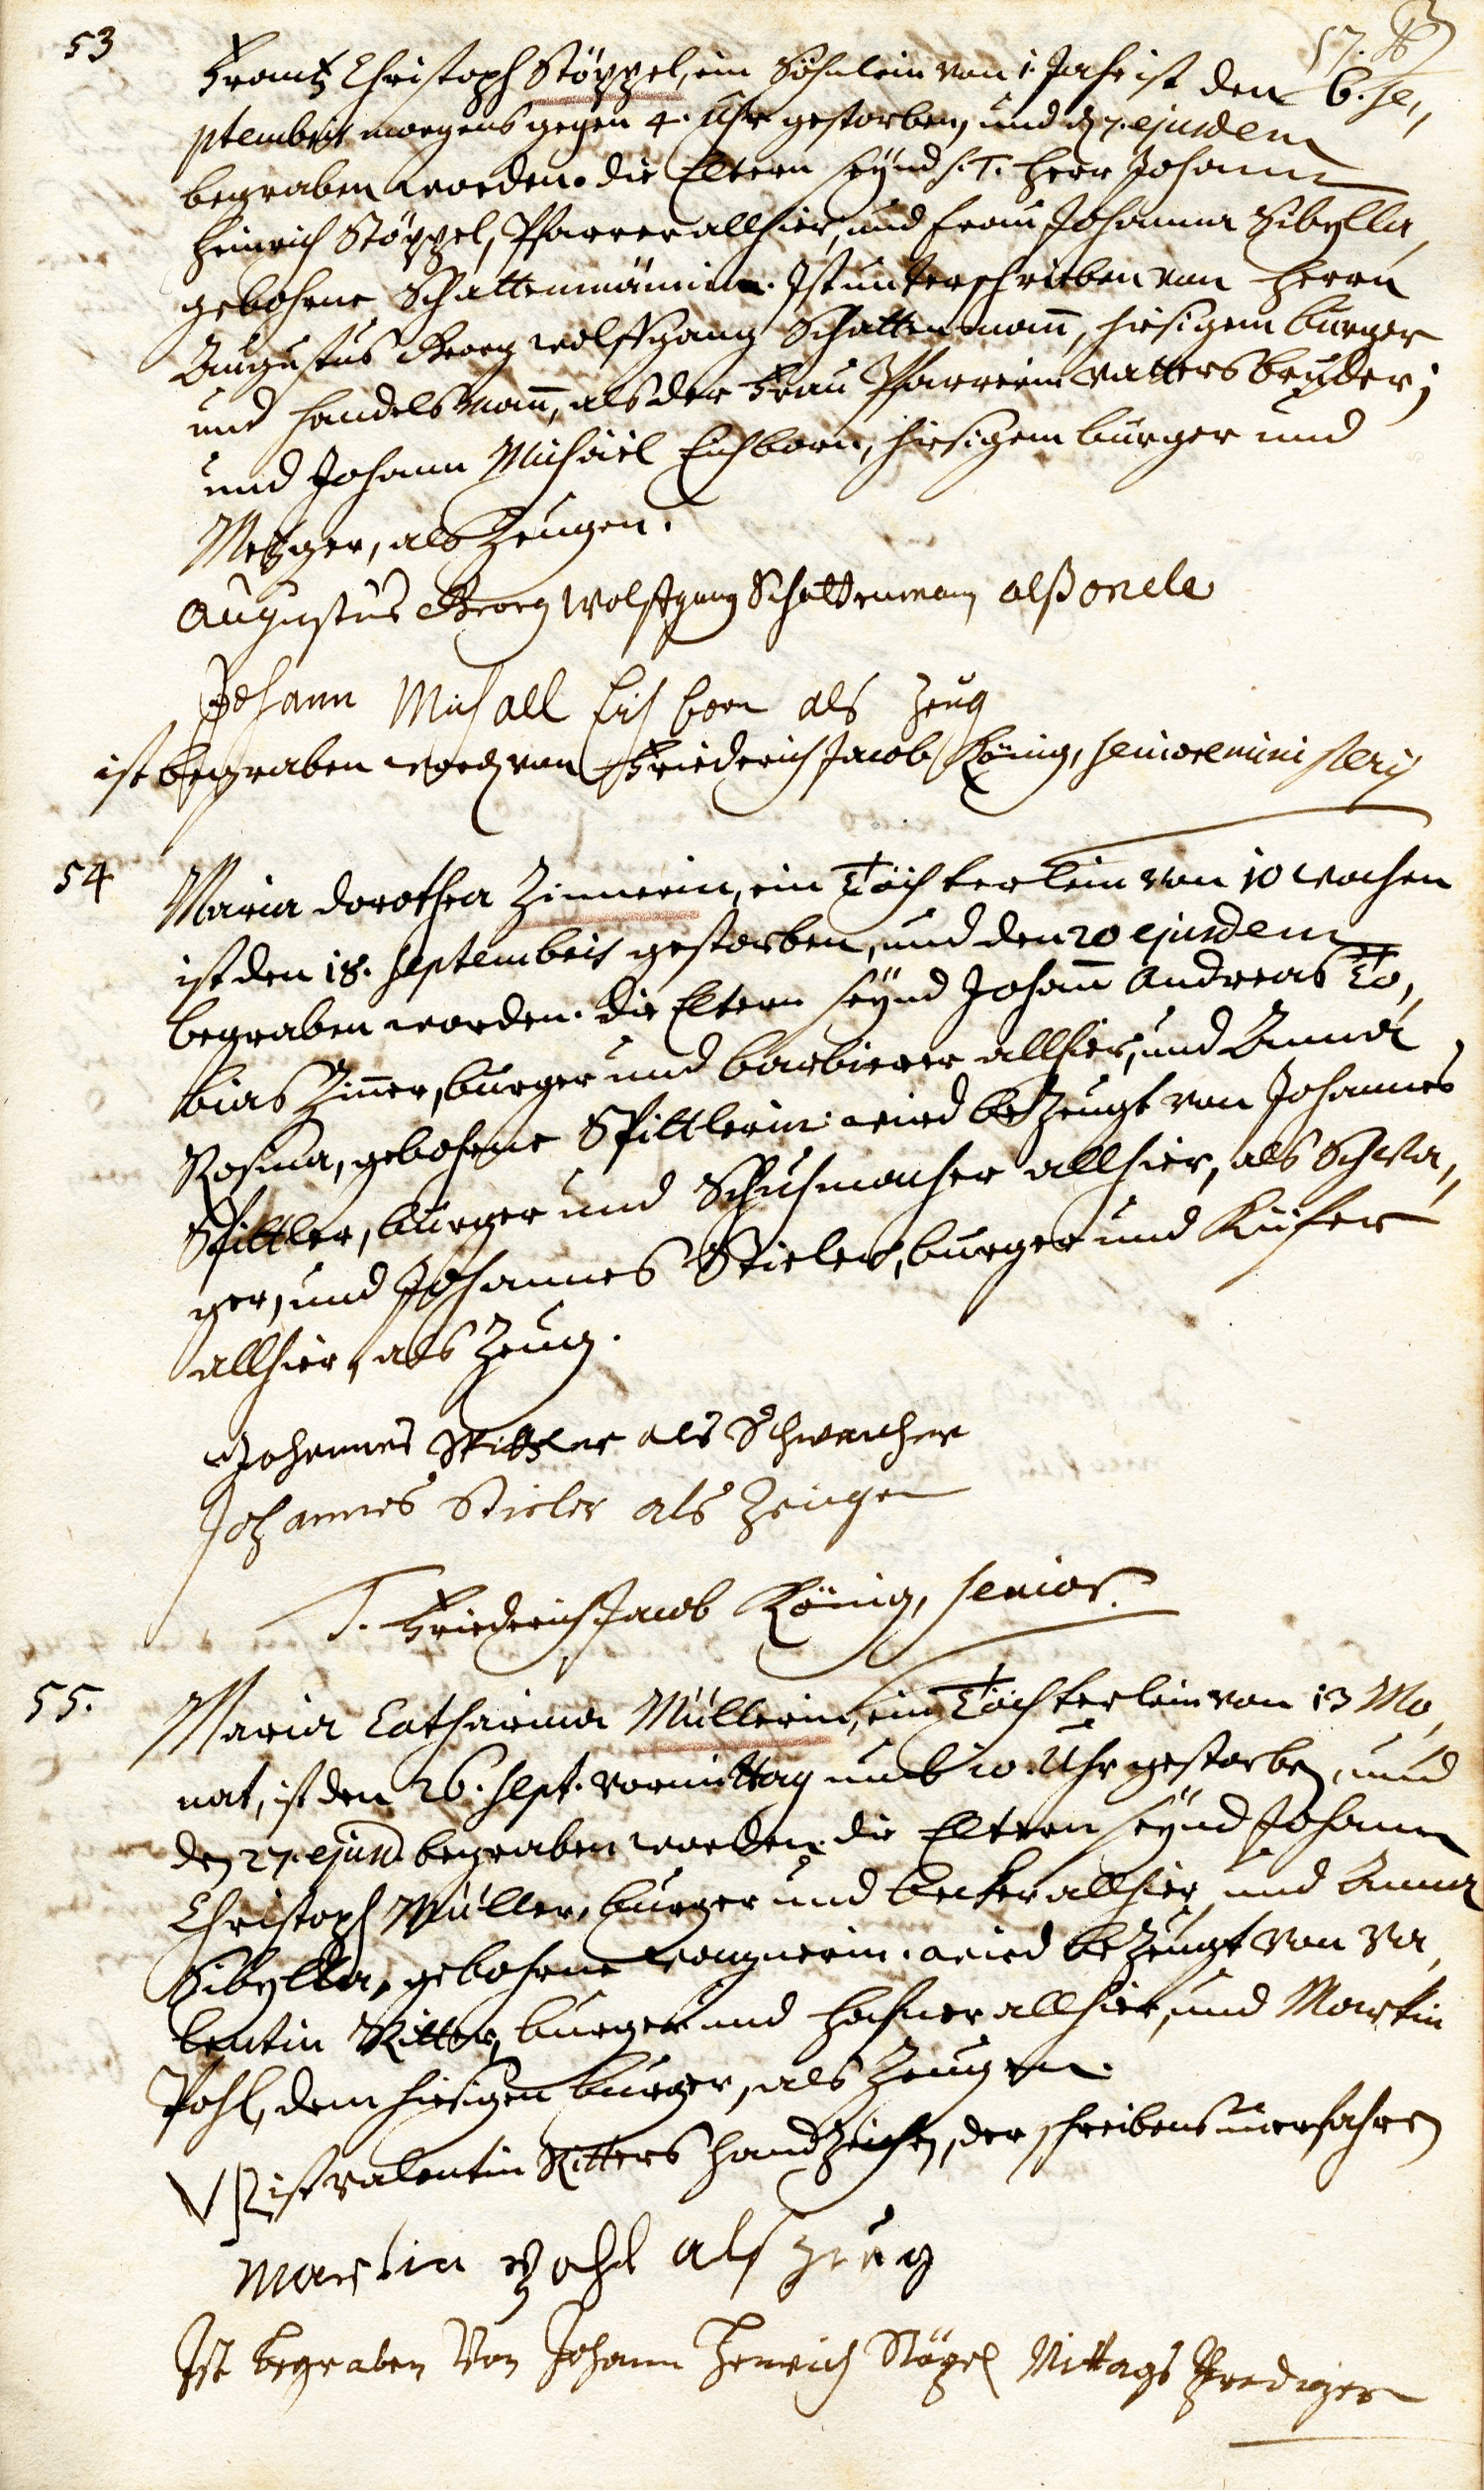 53
Frantz Christoph Stöppel, ein Söhnlein von 1. Jahr ist den 6. Se,,
ptembris morgens gegen 4. Uhr gestorben, und d. 7. ejusdem
begraben worden. die Eltern seynd S. T. Herr Johann
Heinrich Stöppel, Pfarrer allhier, und Frau Johanna Sibylla,
gebohrne Schattenmännin. Ist unterschrieben von Herrn
Augustus Georg Wolffgang Schattenmañ, hiesigem burger
und Handelsmañ, als der Frau Pfarrerin Vatters bruder;
und Johann Michäel Eichborn, hiesigem burger und
Metzger, als Zeugen.
Augustus Georg Wolffgang Schattenman alß oncle
Johann Michall Eich born als Zeug
ist begraben word. von Friederich Jacob König, seniore ministerij
54
Maria Dorothea Zinnerin, ein Töchterlein von 10 wochen
ist den 18. Septembris gestorben, und den 20 ejusdem
begraben worden. die Eltern seynd Johañ Andreas To,
bias Ziñer, burger und barbierer allhier, und Anna
Rosina, gebohrne Spittlerin. wird bezeugt von Johannes
Spittler, burger und Schuhmacher allhier, als Schwa,,
ger, und Johannes Stieler, burger und Küfer
allhier, als Zeug.
Johannes Spittler als Schwacher
Johannes Stieler als Zeuge
T. Friederich Jacob König, senior.
55.
Maria Catharina Müllerin, ein Töchterlein von 13 Mo,
nat, ist den 26. Sept. vormittag umb 10. Uhr gestorben, und
den 27. ejusd. begraben worden. die Eltern seynd Johann
Christoph Müller, burger und becker allhier und Anna
Sibylla, gebohrne Wagnerin. wird bezeugt von Va,
lentin Ritter, burger und Hafner allhier, und Martin
Pohl, dem hiesigen burger, als Zeugen.
VR ist Valentin Ritters Handzeichen, der schreibens unerfahren
Martin Pohl als Zeug
Ist begraben Von Johann Henrich Stöpel Mittags Prediger